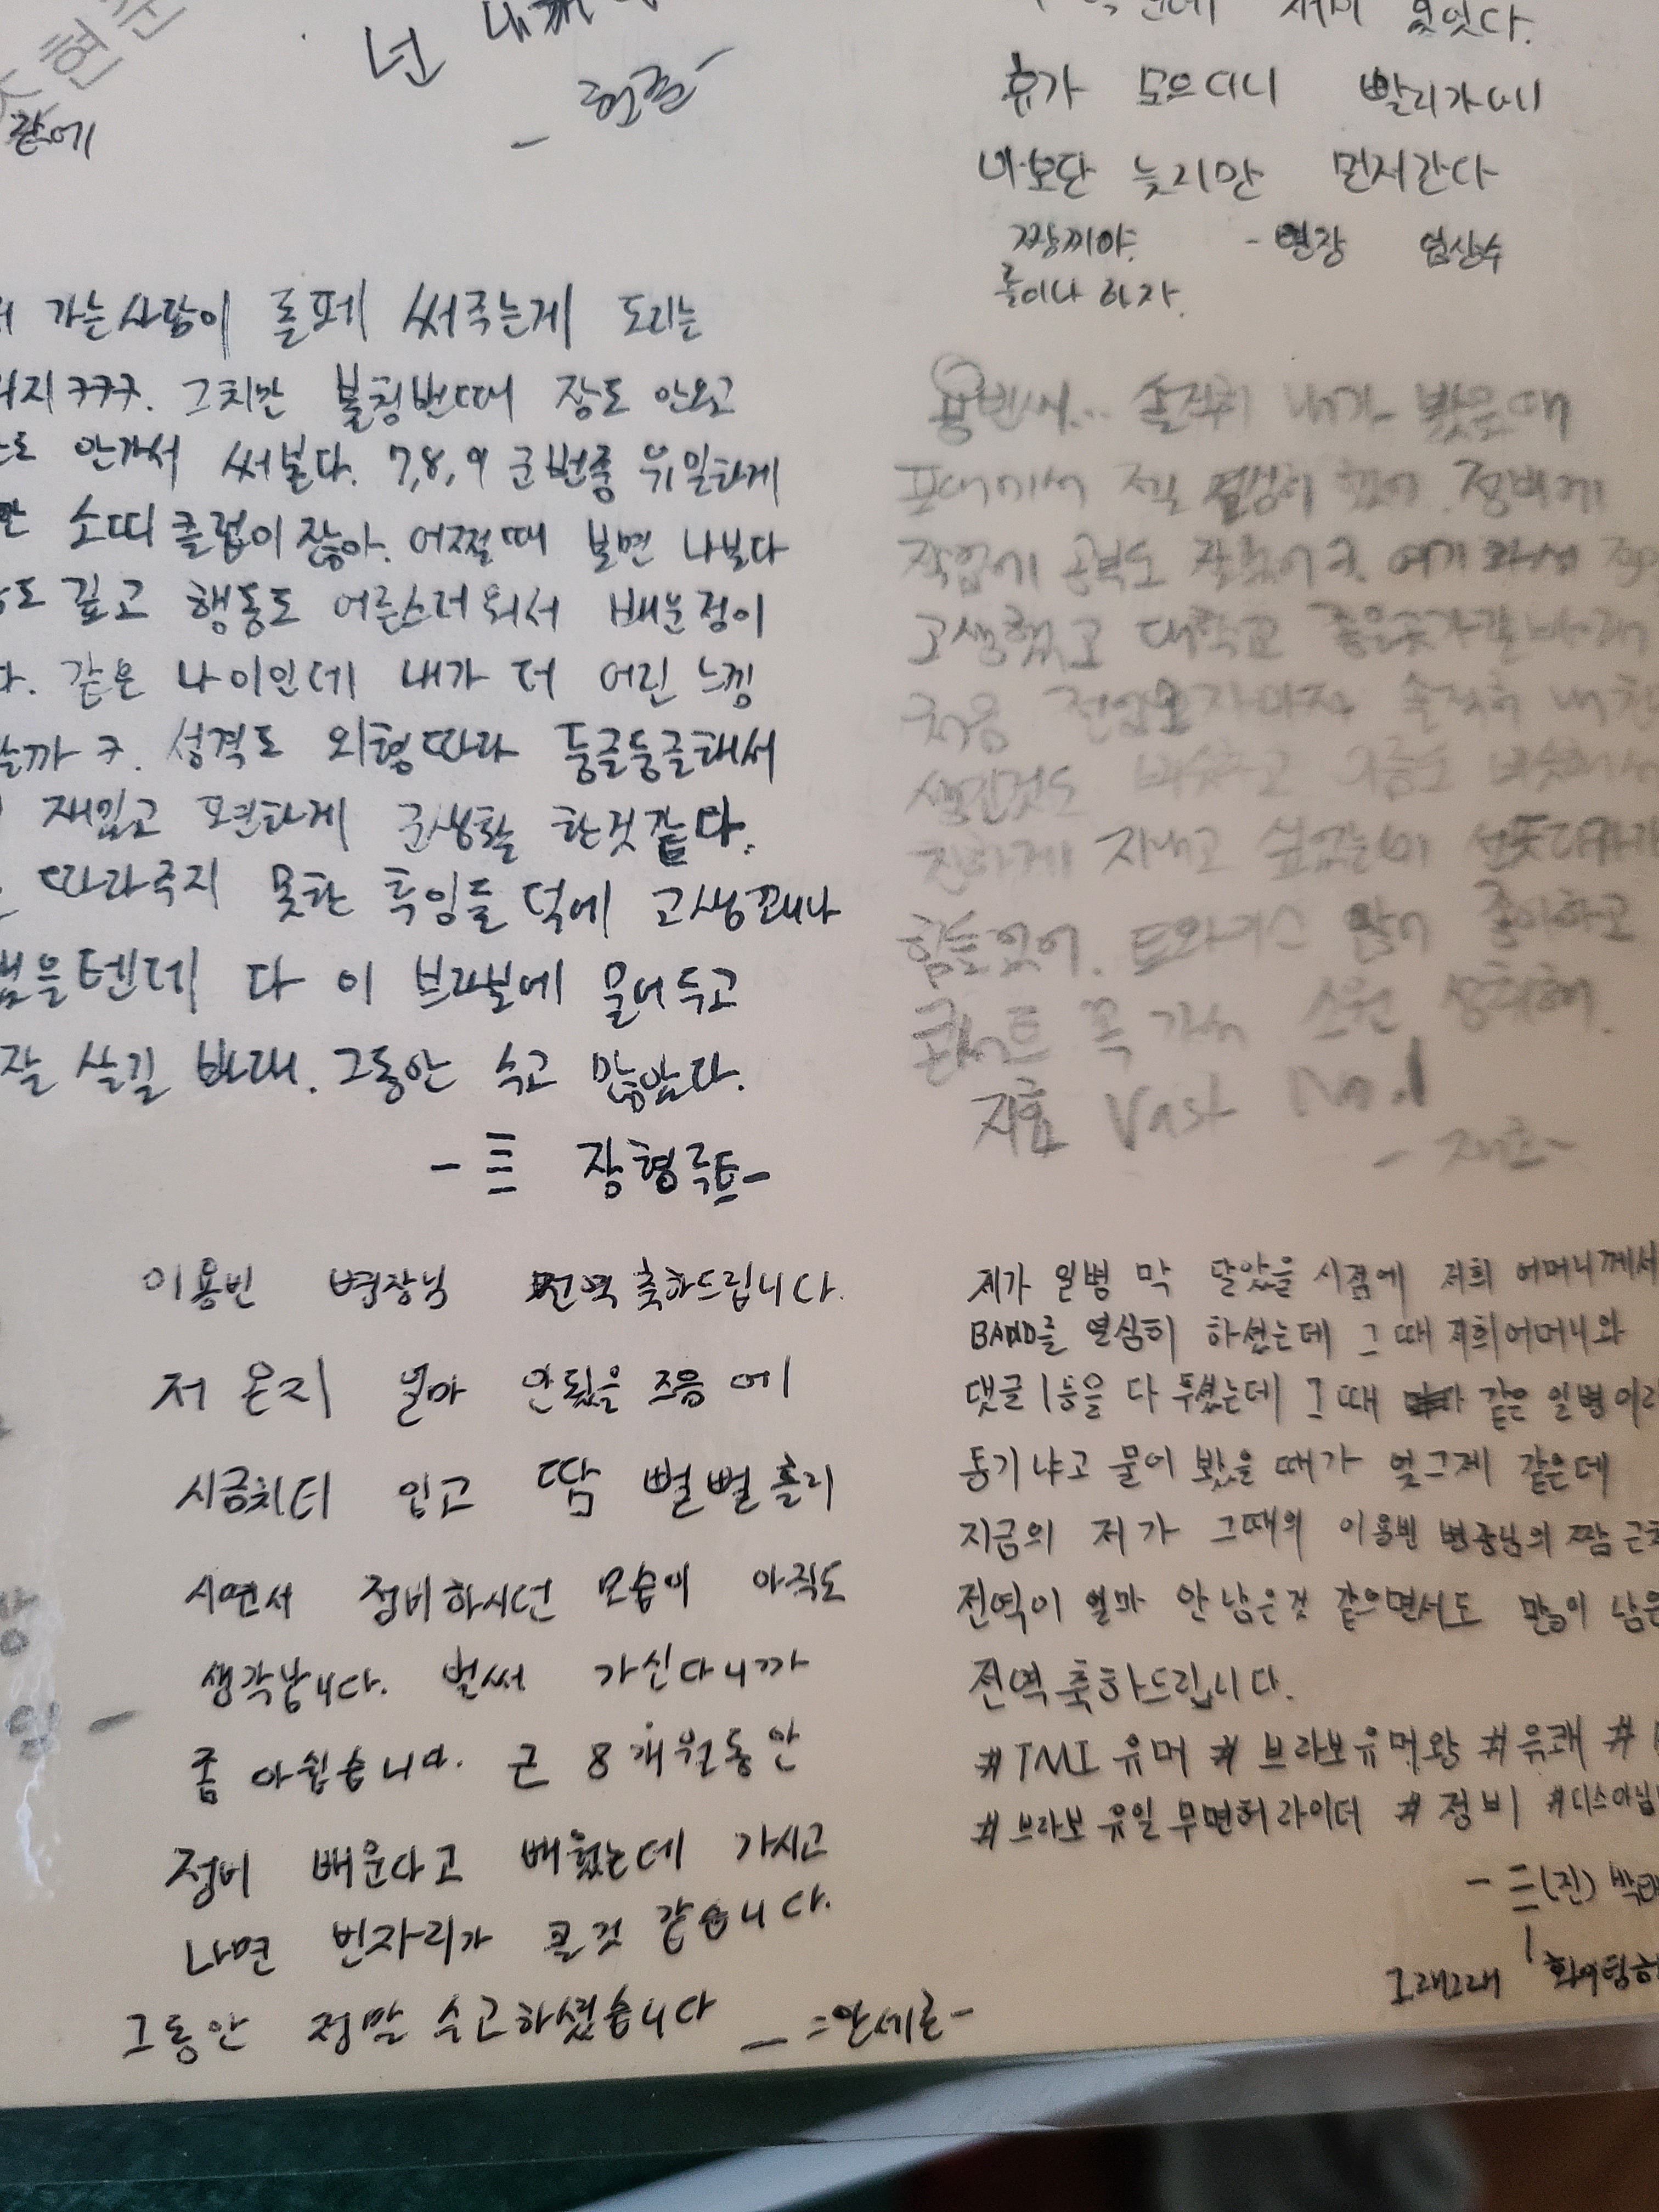 넌
같에
휴가 모으더니 빨리가네
나보단 늦지만 먼저간다
짱끼야. - 병장 엄상수
롤이나 하자.
가는사람이 롤페 써주는게 도리는
ㅋㅋㅋ. 그치만 불침번때 잠도 안오고
안가서 써본다. 7,8,9 군번중 유일하게
소띠클럽이잖아. 어쩔때 보면 나보다
깊고 행동도 어른스러워서 배운점이
같은 나이인데 내가 더 어린 느낌
ㅋ. 성격도 외형따라 둥글둥글해서
재밌고 편하게 군생활 한것같다.
따라주지 못한 후임들 덕에 고생꽤나
했을텐데 다 이 브라보에 묻어두고
잘 살길 바래. 그동안 수고 많았다.
- 장형루트-
용빈씨... 솔직히 내가 봤을때
포대에서 제일 열심히 했어. 정비에
작업에 공부도 잘했어ㅋ. 여기 와서
고생했고 대학교 좋은곳가길바래
처음 전입오자마자 솔직히
생긴것도 비슷하고 이름도 비슷해서
친하게 지내고 싶었는데
힘들었어. 트와이스 많이 좋아하고
콘서트 꼭 가서 소원 성취해.
지효 Vast No.1
이용빈 병장님 전역축하드립니다.
저 온지 얼마 안됬을 즈음에
시금치티 입고 땀 뻘뻘흘리
시면서 정비하시던 모습이 아직도
생각납니다. 벌써 가신다니까
좀 아쉽습니다. 근 8개월동안
정비 배운다고 배웠는데 가시고
나면 빈자리가 클것 같습니다.
그동안 정말 수고하셨습니다 - =안세론-
제가 일병 막 달았을 시점에 저희 어머니께서
BAND를 열심히 하셨는데 그때 저희어머니와
댓글 1등을 다투셨는데 그때 같은 일병
동기냐고 물어 봤을 때가 엊그제 같은데
지금의 제가 그때의 이용빈 병장님의 짬
전역이 얼마 안남은것 같으면서도 많이 남은
전역축하드립니다.
#TMI유머 #브라보유머왕 #유쾌 #
#브라보유일무면허라이더 #정비 #디스아님
- (진)
그래그래 화이팅